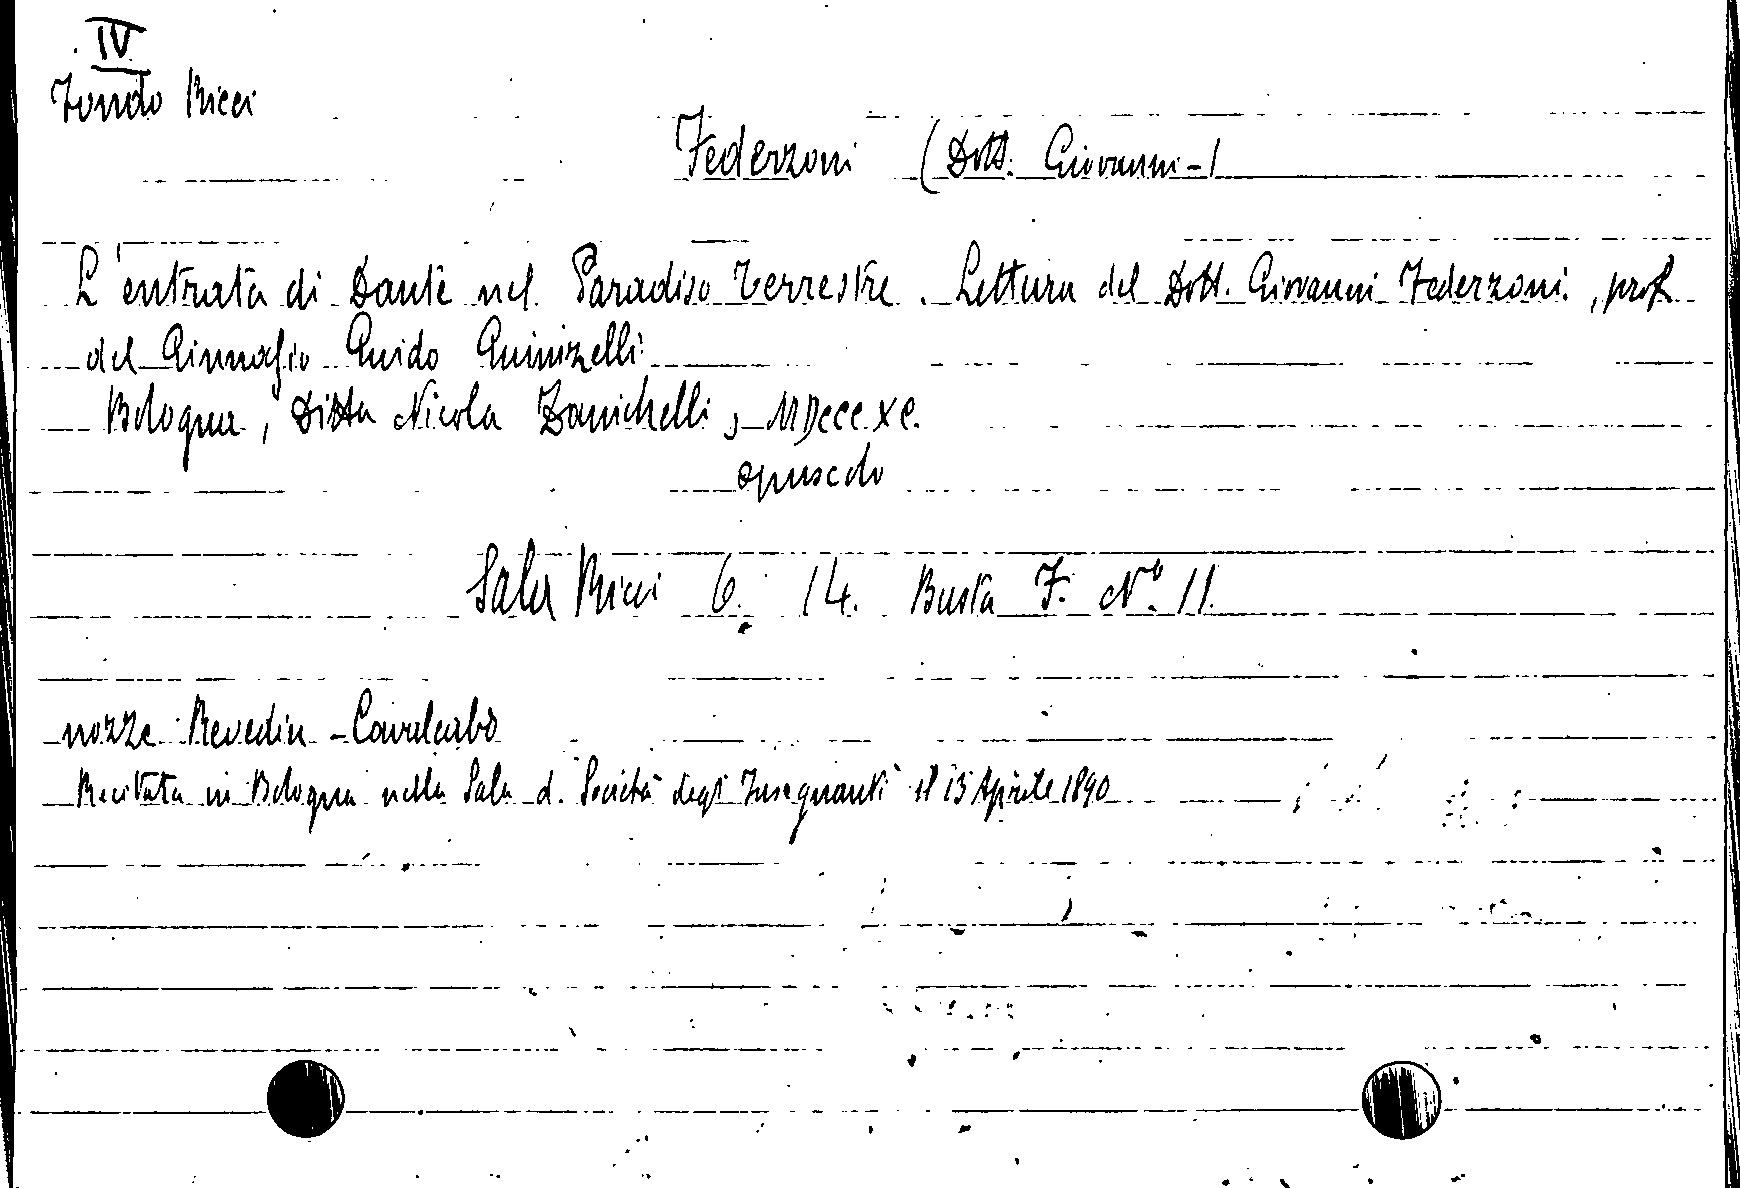 IV
Fondo Ricci
Federzoni (Dott. Giovanni-)
L'entrata di Dante nel Paradiso Terrestre. Lettura del Dott. Giovanni Federzoni, prof.
del Ginnasio Guido Guinizelli
Bologna, Ditta Nicola Zanichelli, MDCCCXC.
opuscolo
Sala Ricci 6. 14. Busta F. N.º 11.
nozze Revedin - Cavalcabò
Recitata in Bologna nella Sala d. Società degl'Insegnanti il 15 Aprile 1890